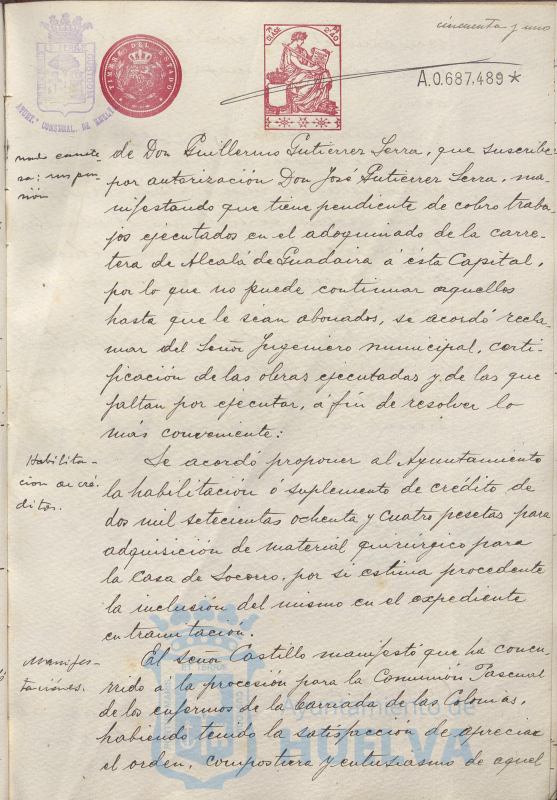 cincuenta y uno
AYUNT. CONSTNAL. DE HUELVA
TIMBRE DEL ESTADO
CLASE 8ª
A.0.687,489*
de Don Guillermo Gutierrez Serra, que suscribe
por autorización Don José Gutierrez Serra, ma-
nifestando que tiene pendiente de cobro traba-
jos ejecutados en el adoquinado de la carre-
tera de Alcalá de Guadaira á esta Capital,
por lo que no puede continuar aquellos
hasta que le sean abonados, se acordó recla-
mar del Señor Ingeniero municipal, certi-
ficación de las obras ejecutadas y de las que
faltan por ejecutar, á fin de resolver lo
más conveniente:
Habilita-
cion de cré-
ditos.
Se acordó proponer al Ayuntamiento
la habilitación ó suplemento de crédito de
dos mil setecientas ochenta y cuatro pesetas para
adquisición de material quirúrgico para
la Casa de Socorro, por si estima procedente
la inclusión del mismo en el expediente
en tramitación.
Manifes-
taciónes.
El señor Castillo manifestó que ha concu-
rrido á la procesión para la Comunión Pascual
de los enfermos de la barriada de las Colonias,
habiendo tenido la satisfacción de apreciar
el orden, compostura y entusiasmo de aquel
Ayuntamiento de
HUELVA